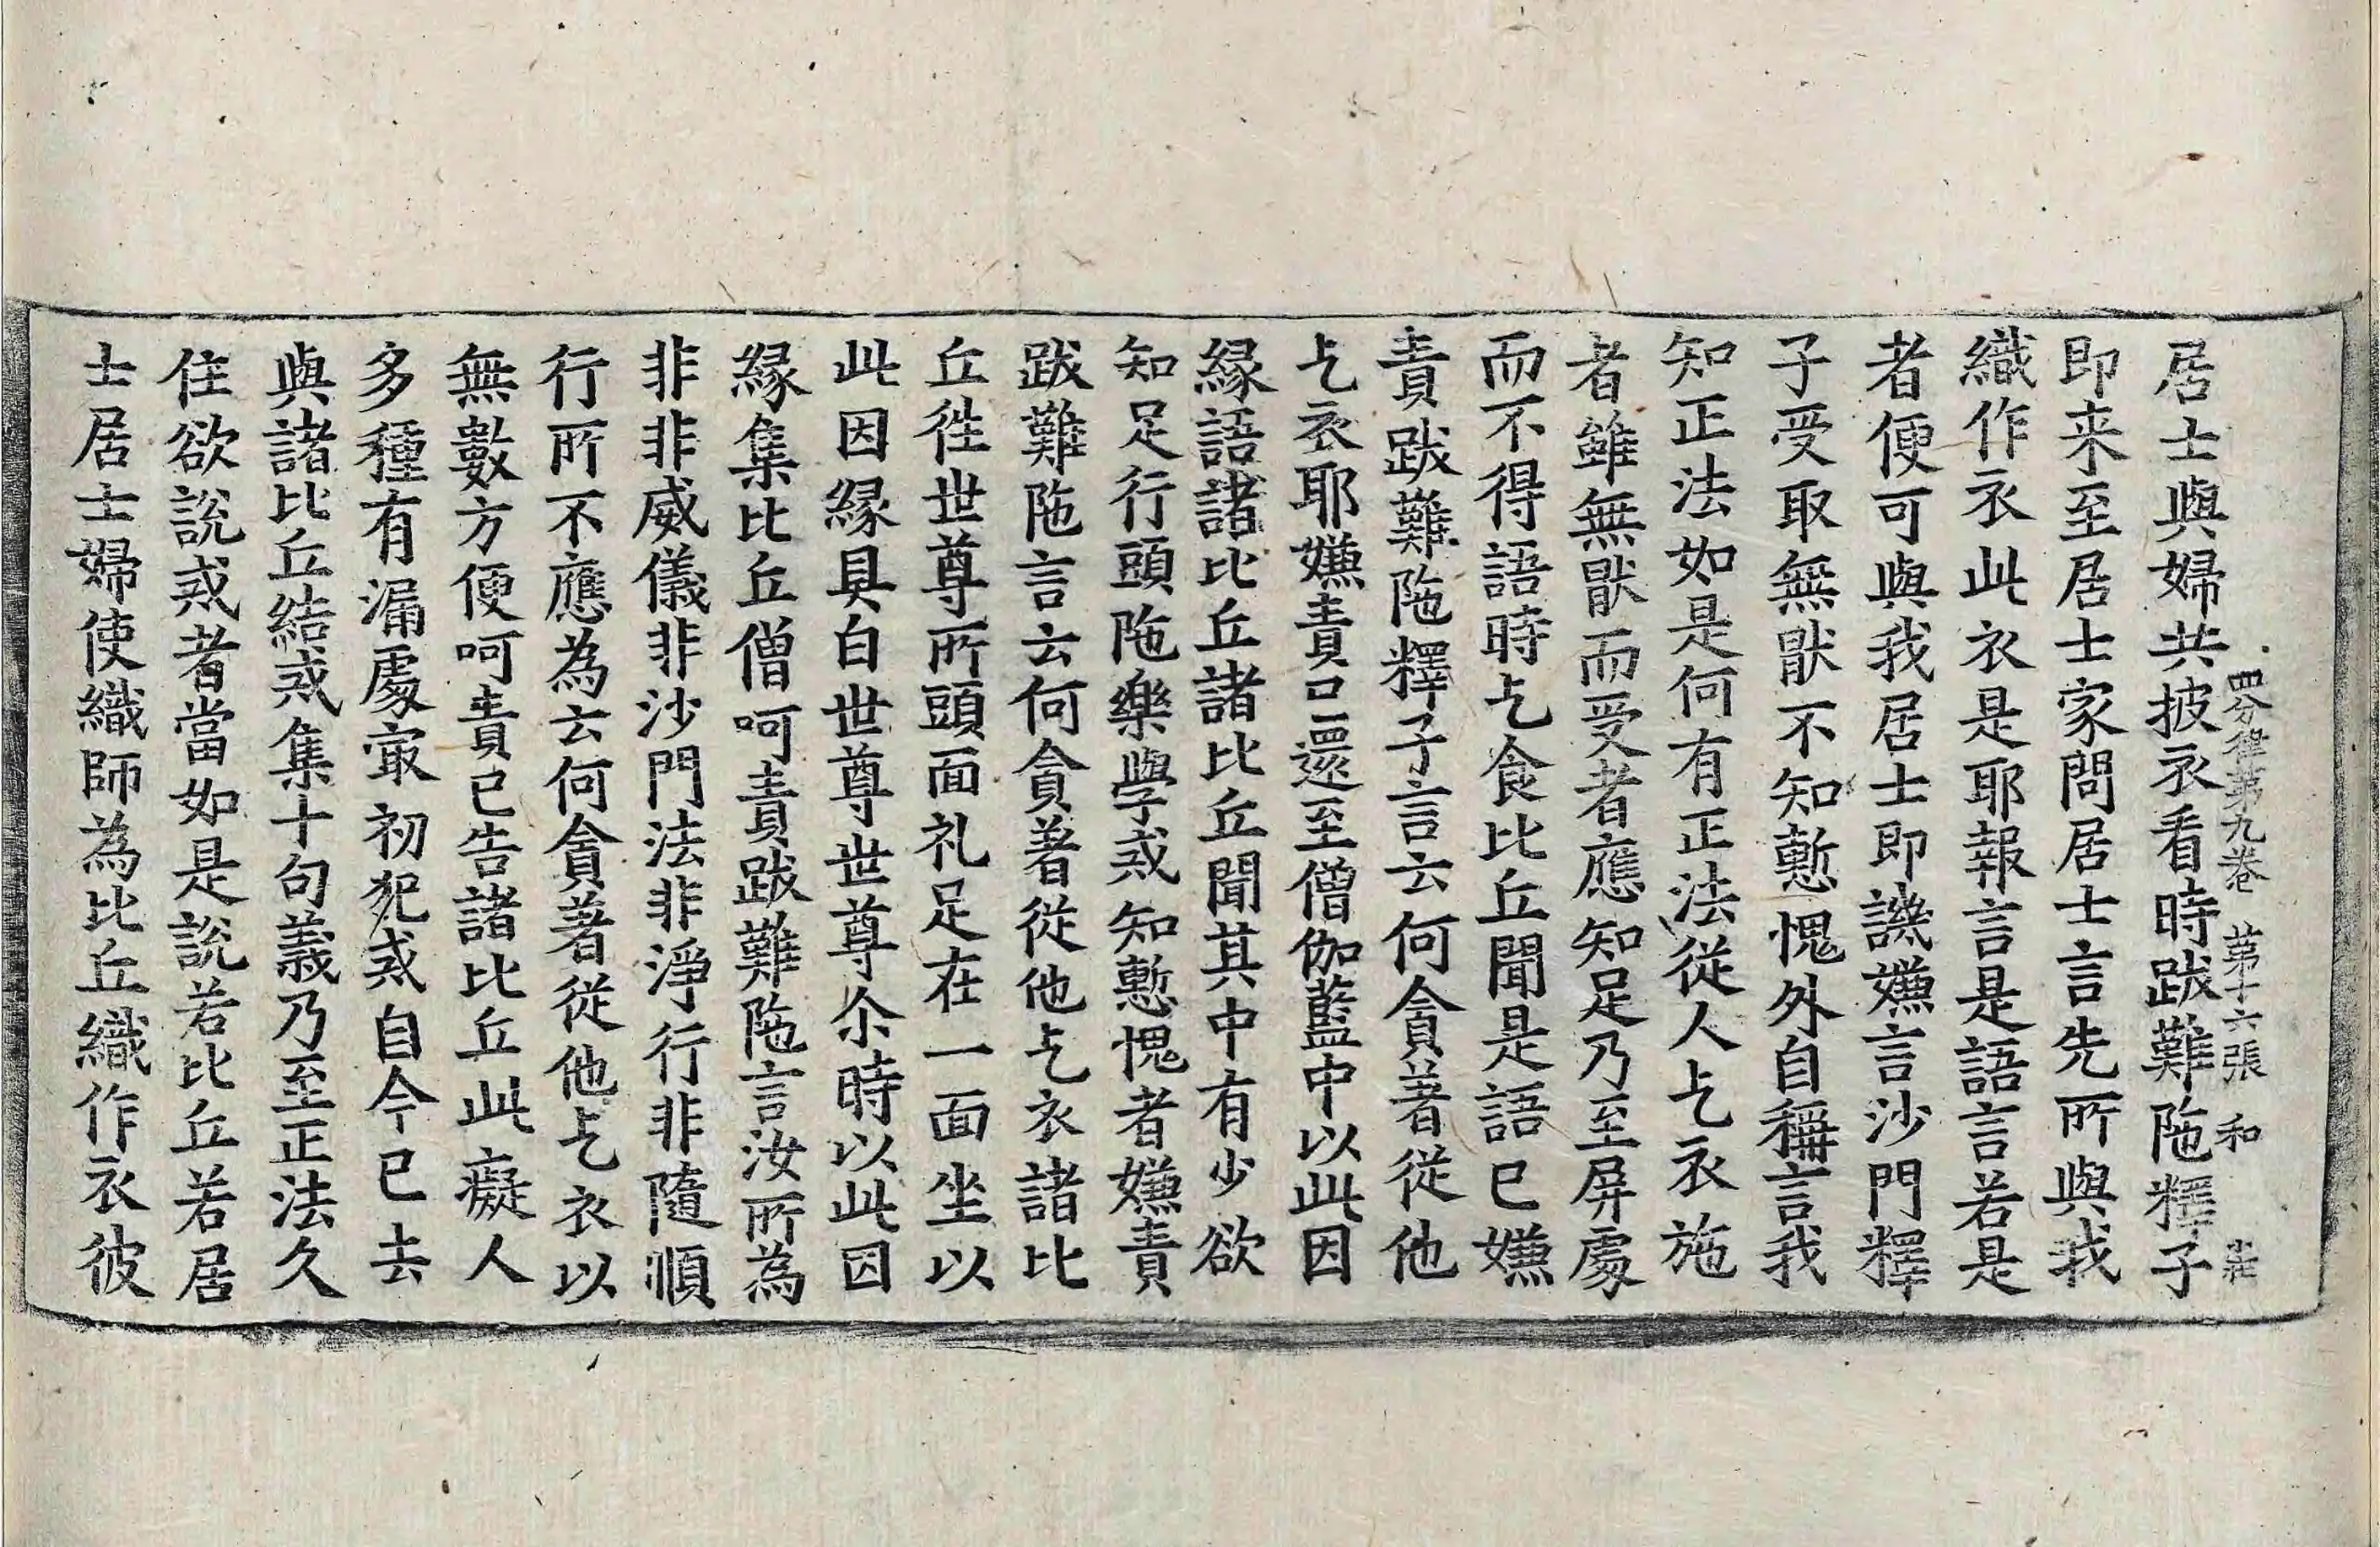 四分律第九卷 第十六張 和
居士與婦共披衣看時跋難陁釋子
即来至居士家問居士言先所與我
織作衣此衣是耶報言是語言若是
者便可與我居士即譏嫌言沙門釋
子受取無猒不知慙愧外自稱言我
知正法如是何有正法從人乞衣施
者雖無猒而受者應知足乃至屏處
而不得語時乞食比丘聞是語已嫌
責跋難陁釋子言云何貪著從他
乞衣耶嫌責已還至僧伽藍中以此因
緣語諸比丘諸比丘聞其中有少欲
知足行頭陁樂學戒知慙愧者嫌責
跋難陁言云何貪著從他乞衣諸比
丘徃世尊所頭面礼足在一面坐以
此因緣具白世尊世尊尒時以此因
緣集比丘僧呵責跋難陁言汝所為
非非威儀非沙門法非淨行非隨順
行所不應為云何貪著從他乞衣以
無數方便呵責已告諸比丘此癡人
多種有漏處㝡初犯戒自今已去
與諸比丘結戒集十句義乃至正法久
住欲說戒者當如是說若比丘若居
士居士婦使織師為比丘織作衣彼